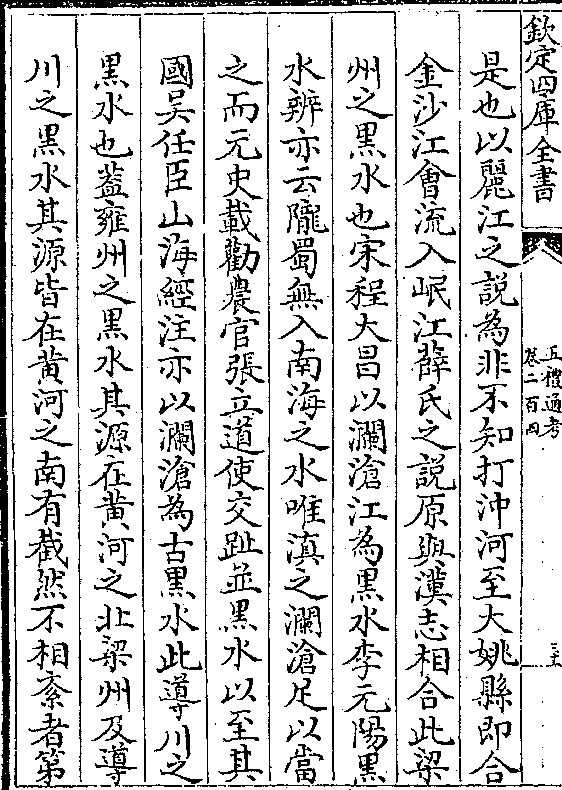 欽定四庫全書
五禮通考
卷二百四
是也以麗江之說為非不知打沖河至大姚縣即合
金沙江會流入岷江薛氏之說原與漢志相合此梁
州之黑水也宋程大昌以瀾滄江為黑水李元陽黑
水辨亦云隴蜀無入南海之水唯滇之瀾滄足以當
之而元史載勸農官張立道使交趾並黑水以至其
國吴任臣山海經注亦以瀾滄為古黑水此導川之
黒水也葢雍州之黒水其源在黄河之北梁州及導
川之黒水其源皆在黄河之南有截然不相紊者第